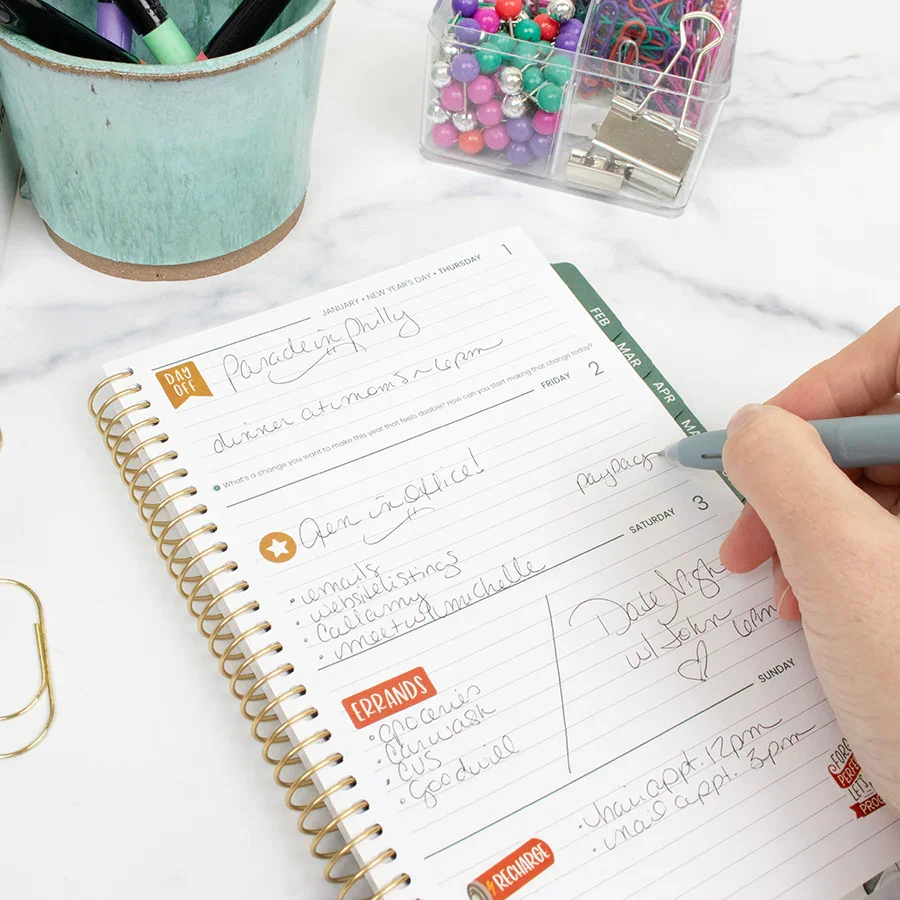 JANUARY • NEW YEAR'S DAY • THURSDAY 1
DAY
OFF
Parade in Philly
dinner at moms ~ 6pm
What's a change you want to make this year that feels doable? How can you start making that change today?
FRIDAY 2
payday
Open in Office!
• emails
• website listings
• call amy
• meet w/ michelle
SATURDAY 3
ERRANDS
• groceries
• car wash
• CVS
• Goodwill
Date Night
w/ John
SUNDAY
• hair appt. 12pm
• nail appt. 3pm
RECHARGE
FEB
MAR
APR